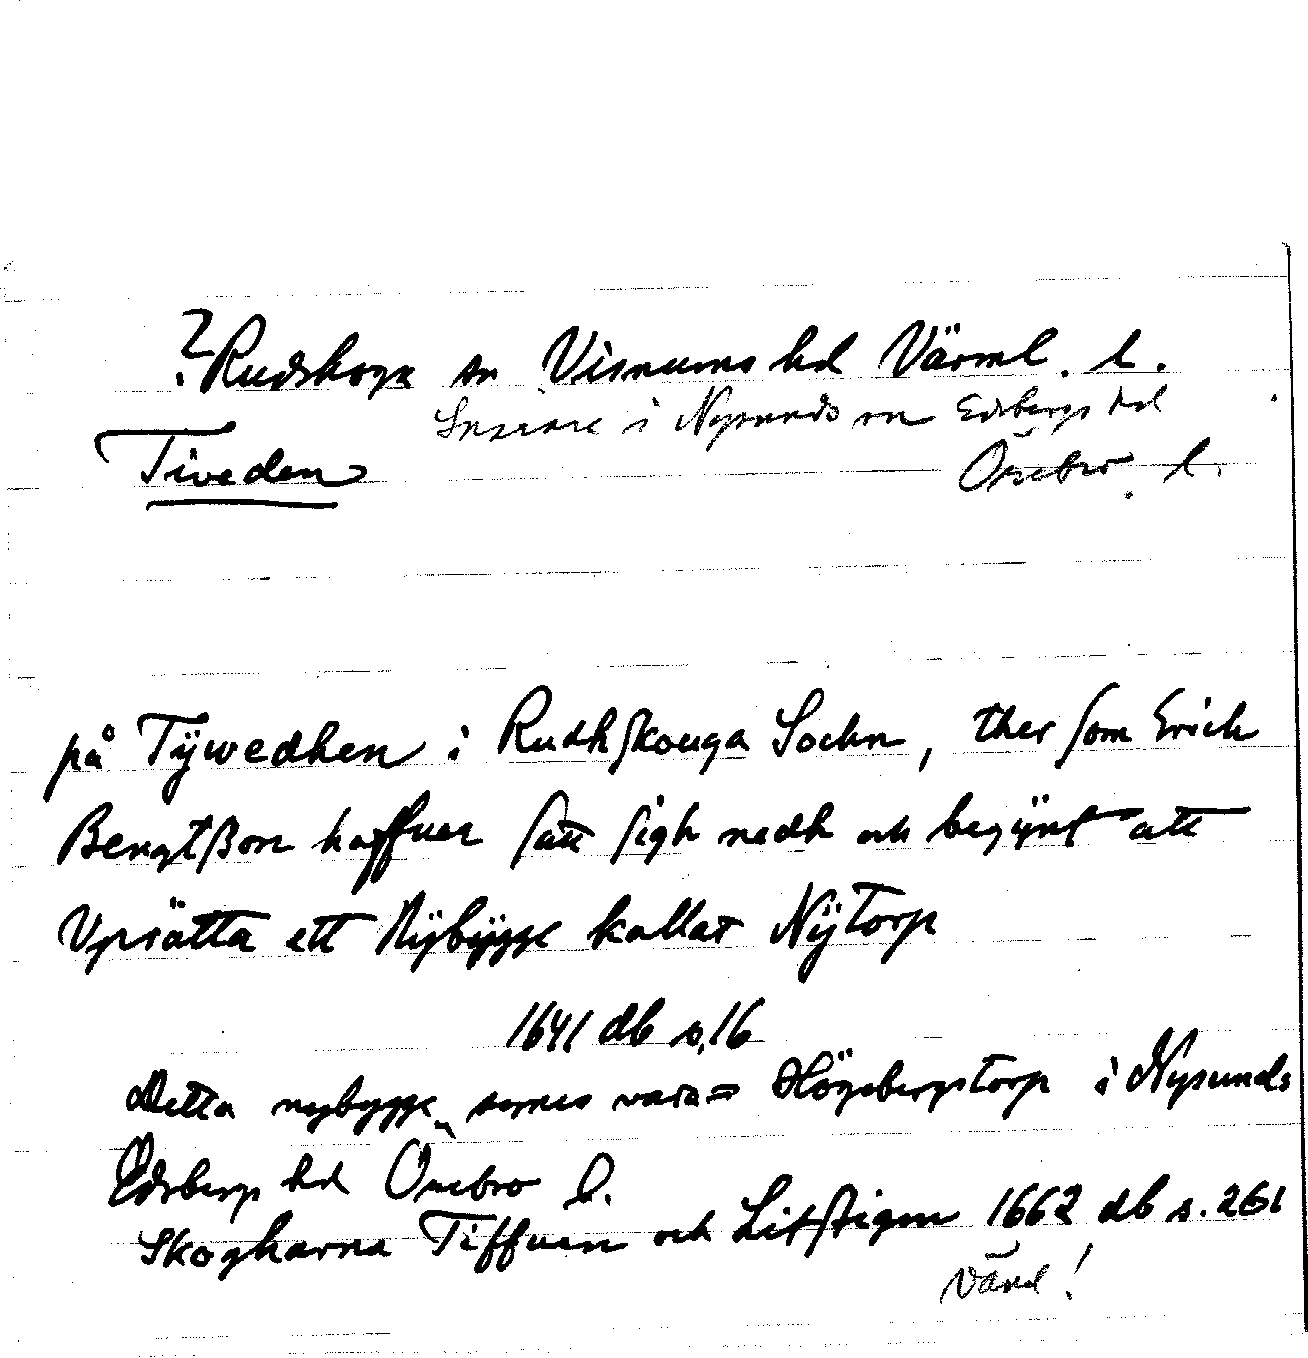 ? Rudskoga sn Visnums hd Värml. l.
Snarare i Nysunds sn Edsbergs hd
Tiveden
Örebro l.
på Tÿwedhen i Rudhskouga Sochn, ther som Erich
Bengtßon haffuer satt sigh nedh och begÿnt att
Vprätta ett Nÿbÿgge kallat Nÿtorp
1641 db s. 16
Detta nybygge synes vara = Högebergstorp i Nysunds
Edsbergs hd Örebro l.
Skogharna Tiffuen och Litstigen 1662 db s. 261
Vänd!